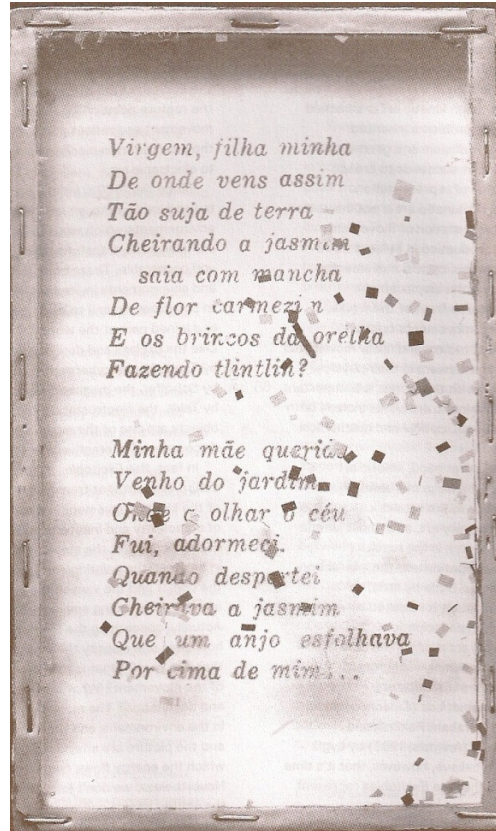 Virgem, filha minha
De onde vens assim
Tão suja de terra
Cheirando a jasmim
saia com mancha
De flor carmezin
E os brincos da orelha
Fazendo tlintlin?
Minha mãe querida
Venho do jardim
Onde a olhar o céu
Fui, adormeci.
Quando despertei
Cheirava a jasmim
Que um anjo esfolhava
Por cima de mim...